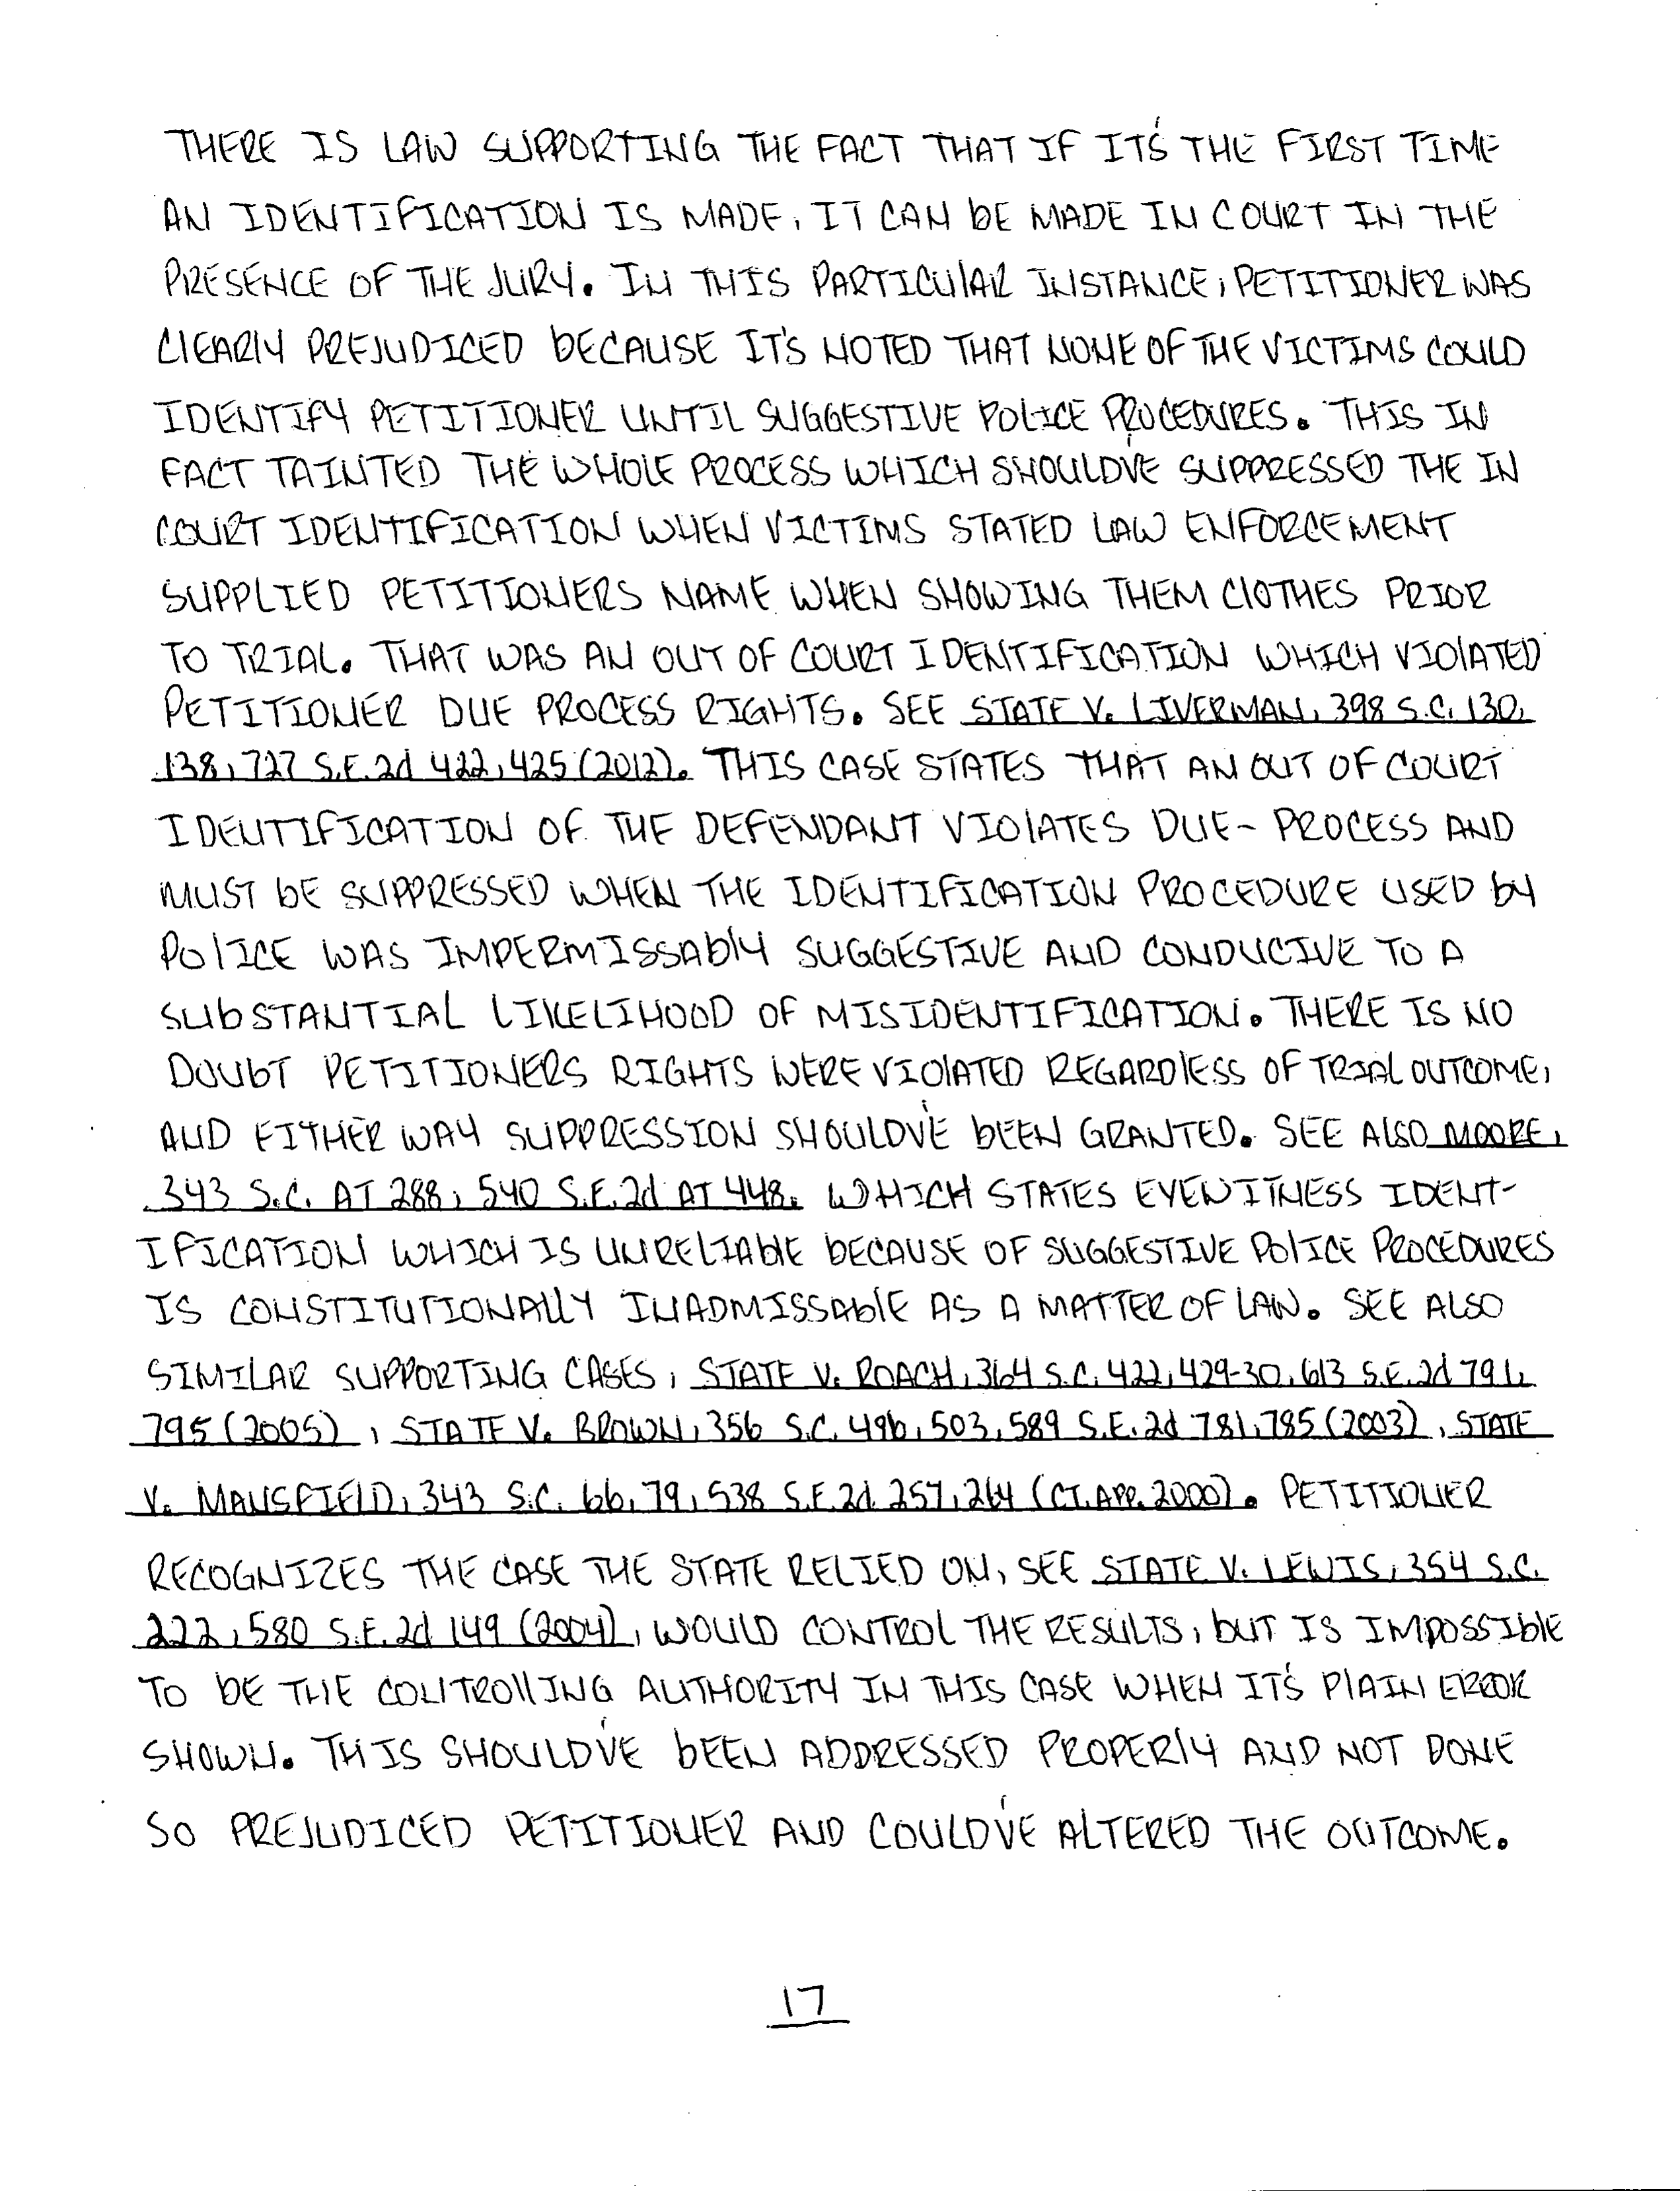 THERE IS LAW SUPPORTING THE FACT THAT IF IT'S THE FIRST TIME
AN IDENTIFICATION IS MADE, IT CAN bE MADE IN COURT IN THE
PRESENCE OF THE JURY. IN THIS PARTICULAR INSTANCE, PETITIONER WAS
CLEARLY PREJUDICED bECAUSE IT'S NOTED THAT NONE OF THE VICTIMS COULD
IDENTIFY PETITIONER UNTIL SUGGESTIVE POLICE PROCEDURES. THIS IN
FACT TAINTED THE WHOLE PROCESS WHICH SHOULD'VE SUPPRESSED THE IN
COURT IDENTIFICATION WHEN VICTIMS STATED LAW ENFORCEMENT
SUPPLIED PETITIONERS NAME WHEN SHOWING THEM CLOTHES PRIOR
TO TRIAL. THAT WAS AN OUT OF COURT IDENTIFICATION WHICH VIOLATED
PETITIONER DUE PROCESS RIGHTS. SEE STATE V. LIVERMAN, 398 S.C. 130,
138, 727 S.E.2d 422, 425 (2012). THIS CASE STATES THAT AN OUT OF COURT
IDENTIFICATION OF THE DEFENDANT VIOLATES DUE-PROCESS AND
MUST bE SUPPRESSED WHEN THE IDENTIFICATION PROCEDURE USED bY
POLICE WAS IMPERMISSAbLY SUGGESTIVE AND CONDUCIVE TO A
SUbSTANTIAL LIKELIHOOD OF MISIDENTIFICATION. THERE IS NO
DOUbT PETITIONERS RIGHTS WERE VIOLATED REGARDLESS OF TRIAL OUTCOME,
AND EITHER WAY SUPPRESSION SHOULD'VE bEEN GRANTED. SEE ALSO MOORE,
343 S.C. AT 288, 540 S.E.2d AT 448. WHICH STATES EYEWITNESS IDENT-
IFICATION WHICH IS UNRELIAbLE bECAUSE OF SUGGESTIVE POLICE PROCEDURES
IS CONSTITUTIONALLY INADMISSAbLE AS A MATTER OF LAW. SEE ALSO
SIMILAR SUPPORTING CASES, STATE V. ROACH, 364 S.C. 422, 429-30, 613 S.E.2d 791,
795 (2005), STATE V. BROWN, 356 S.C. 496, 503, 589 S.E.2d 781, 785 (2003), STATE
V. MANSFIELD, 343 S.C. 66, 79, 538 S.E.2d 257, 264 (CT. APP. 2000). PETITIONER
RECOGNIZES THE CASE THE STATE RELIED ON, SEE STATE V. LEWIS, 354 S.C.
222, 580 S.E.2d 149 (2004), WOULD CONTROL THE RESULTS, bUT IS IMPOSSIbLE
TO bE THE CONTROLLING AUTHORITY IN THIS CASE WHEN IT'S PLAIN ERROR
SHOWN. THIS SHOULD'VE bEEN ADDRESSED PROPERLY AND NOT DONE
SO PREJUDICED PETITIONER AND COULD'VE ALTERED THE OUTCOME.
17